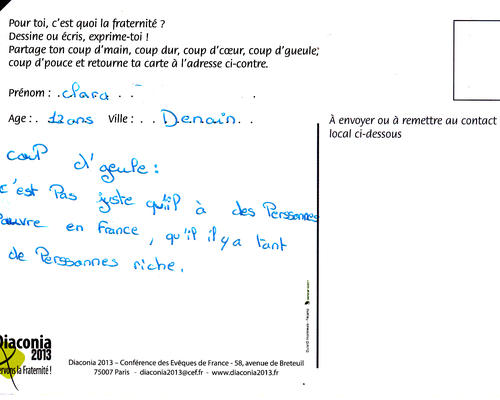 Pour toi, c'est quoi la fraternité ?
Dessine ou écris, exprime-toi !
Partage ton coup d'main, coup dur, coup d'cœur, coup d'gueule,
coup d'pouce et retourne ta carte à l'adresse ci-contre.
Prénom : . Clara . .
Age : . 12 ans Ville : . . Denain . .
À envoyer ou à remettre au contact
local ci-dessous
couP d'geule :
c'est Pas juste qu'il à des Perssonnes
Pauvre en France, qu'il il y a tant
de Perssonnes riche.
Diaconia
2013
Servons la Fraternité !
Diaconia 2013 – Conférence des Evêques de France - 58, avenue de Breteuil
75007 Paris - diaconia2013@cef.fr - www.diaconia2013.fr